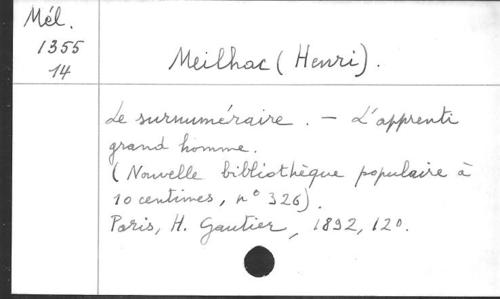 Mél.
1355
14
Meilhac (Henri).
Le surnuméraire. - L'apprenti
grand homme.
(Nouvelle bibliothèque populaire à
10 centimes, n° 326).
Paris, H. Gautier, 1892, 12o.